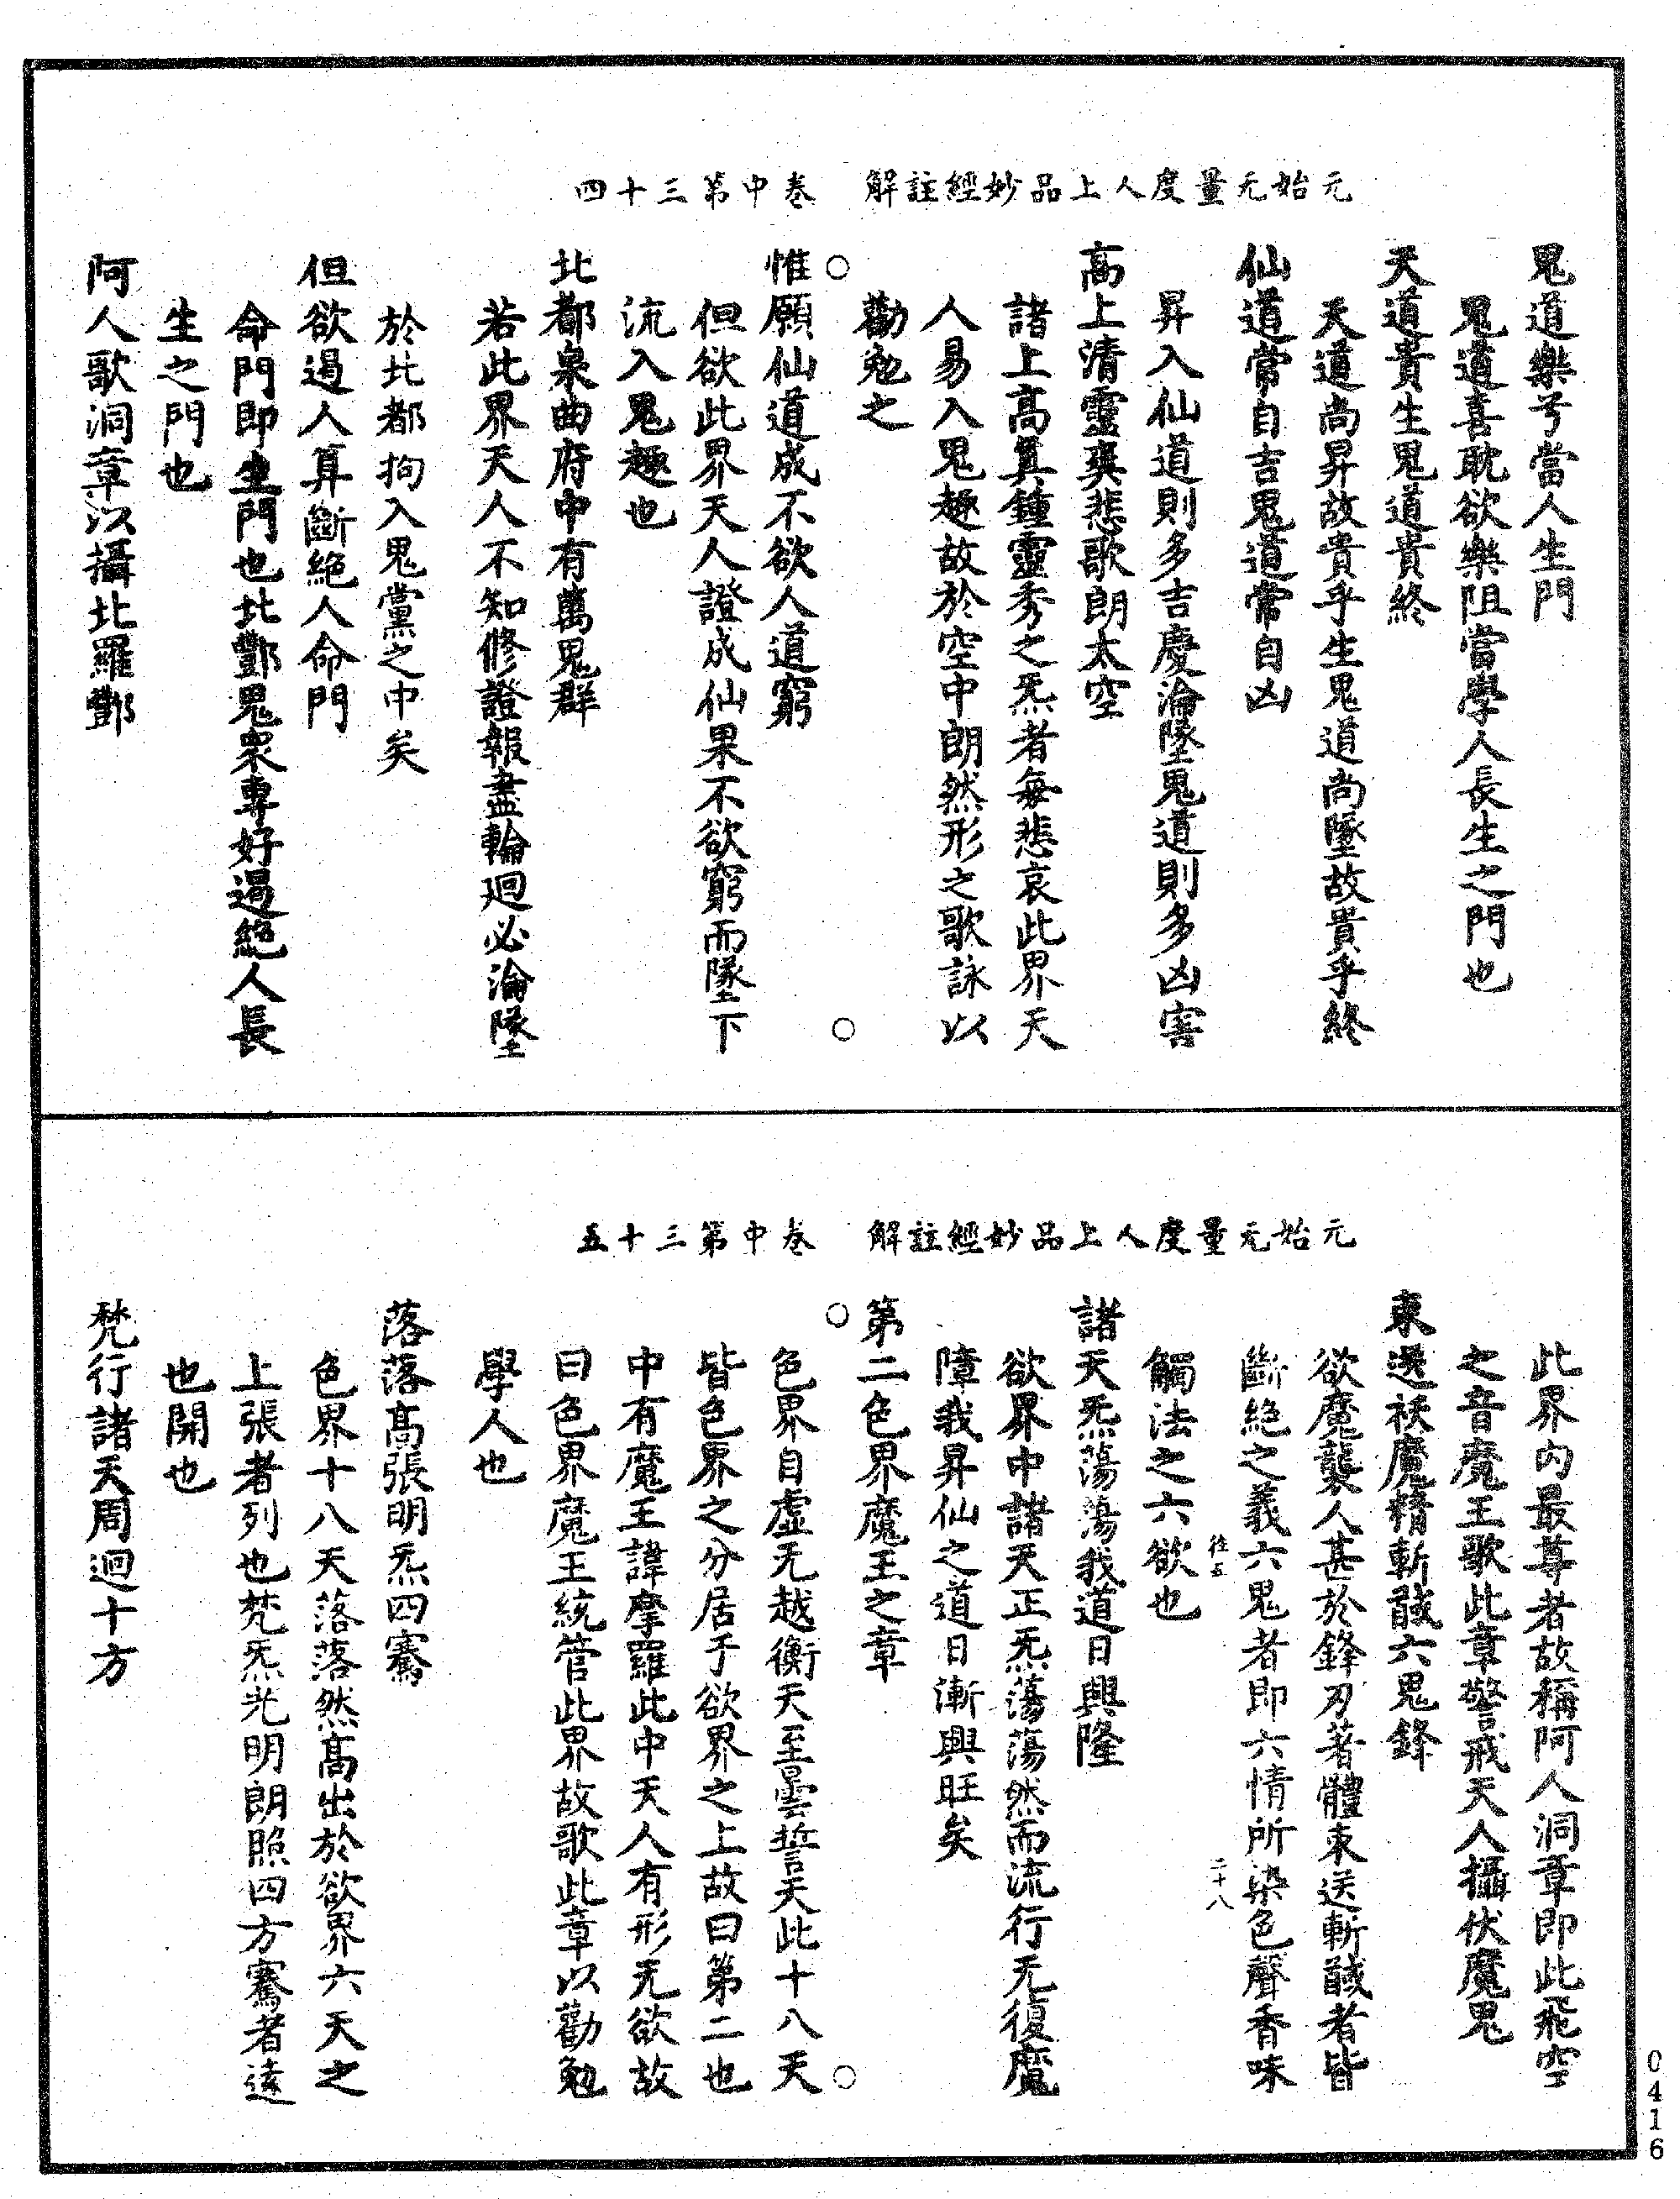 元始无量度人上品妙經註解　卷中第三十四
鬼道樂兮當人生門
鬼道喜耽欲樂阻當學人長生之門也
天道貴生鬼道貴終
天道尚昇故貴乎生鬼道尚墜故貴乎終
仙道常自吉鬼道常自凶
昇入仙道則多吉慶淪墜鬼道則多凶害
高上清靈爽悲歌朗太空
諸上高真鍾靈秀之炁者每悲哀此界天
人易入鬼趣故於空中朗然形之歌詠以
勸勉之
惟願仙道成不欲人道窮
但欲此界天人證成仙果不欲窮而墜下
流入鬼趣也
北都泉曲府中有萬鬼群
若此界天人不知修證報盡輪廻必淪墜
於北都拘入鬼黨之中矣
但欲遏人算斷絕人命門
命門即生門也北酆鬼衆專好遏絕人長
生之門也
阿人歌洞章以攝北羅酆
元始无量度人上品妙經註解　卷中第三十五
此界內最尊者故稱阿人洞章即此飛空
之音魔王歌此章警戒天人攝伏魔鬼
束送祅魔精斬馘六鬼鋒
欲魔襲人甚於鋒刃著體束送斬馘者皆
斷絕之義六鬼者即六情所染色聲香味
觸法之六欲也
二十八
諸天炁蕩蕩我道日興隆
欲界中諸天正炁蕩蕩然而流行无復魔
障我昇仙之道日漸興旺矣
第二色界魔王之章
色界自虛无越衡天至曇誓天此十八天
皆色界之分居于欲界之上故曰第二也
中有魔王諱摩羅此中天人有形无欲故
曰色界魔王統管此界故歌此章以勸勉
學人也
落落高張明炁四騫
色界十八天落落然高出於欲界六天之
上張者列也梵炁光明朗照四方騫者遠
也開也
梵行諸天周迴十方
0416